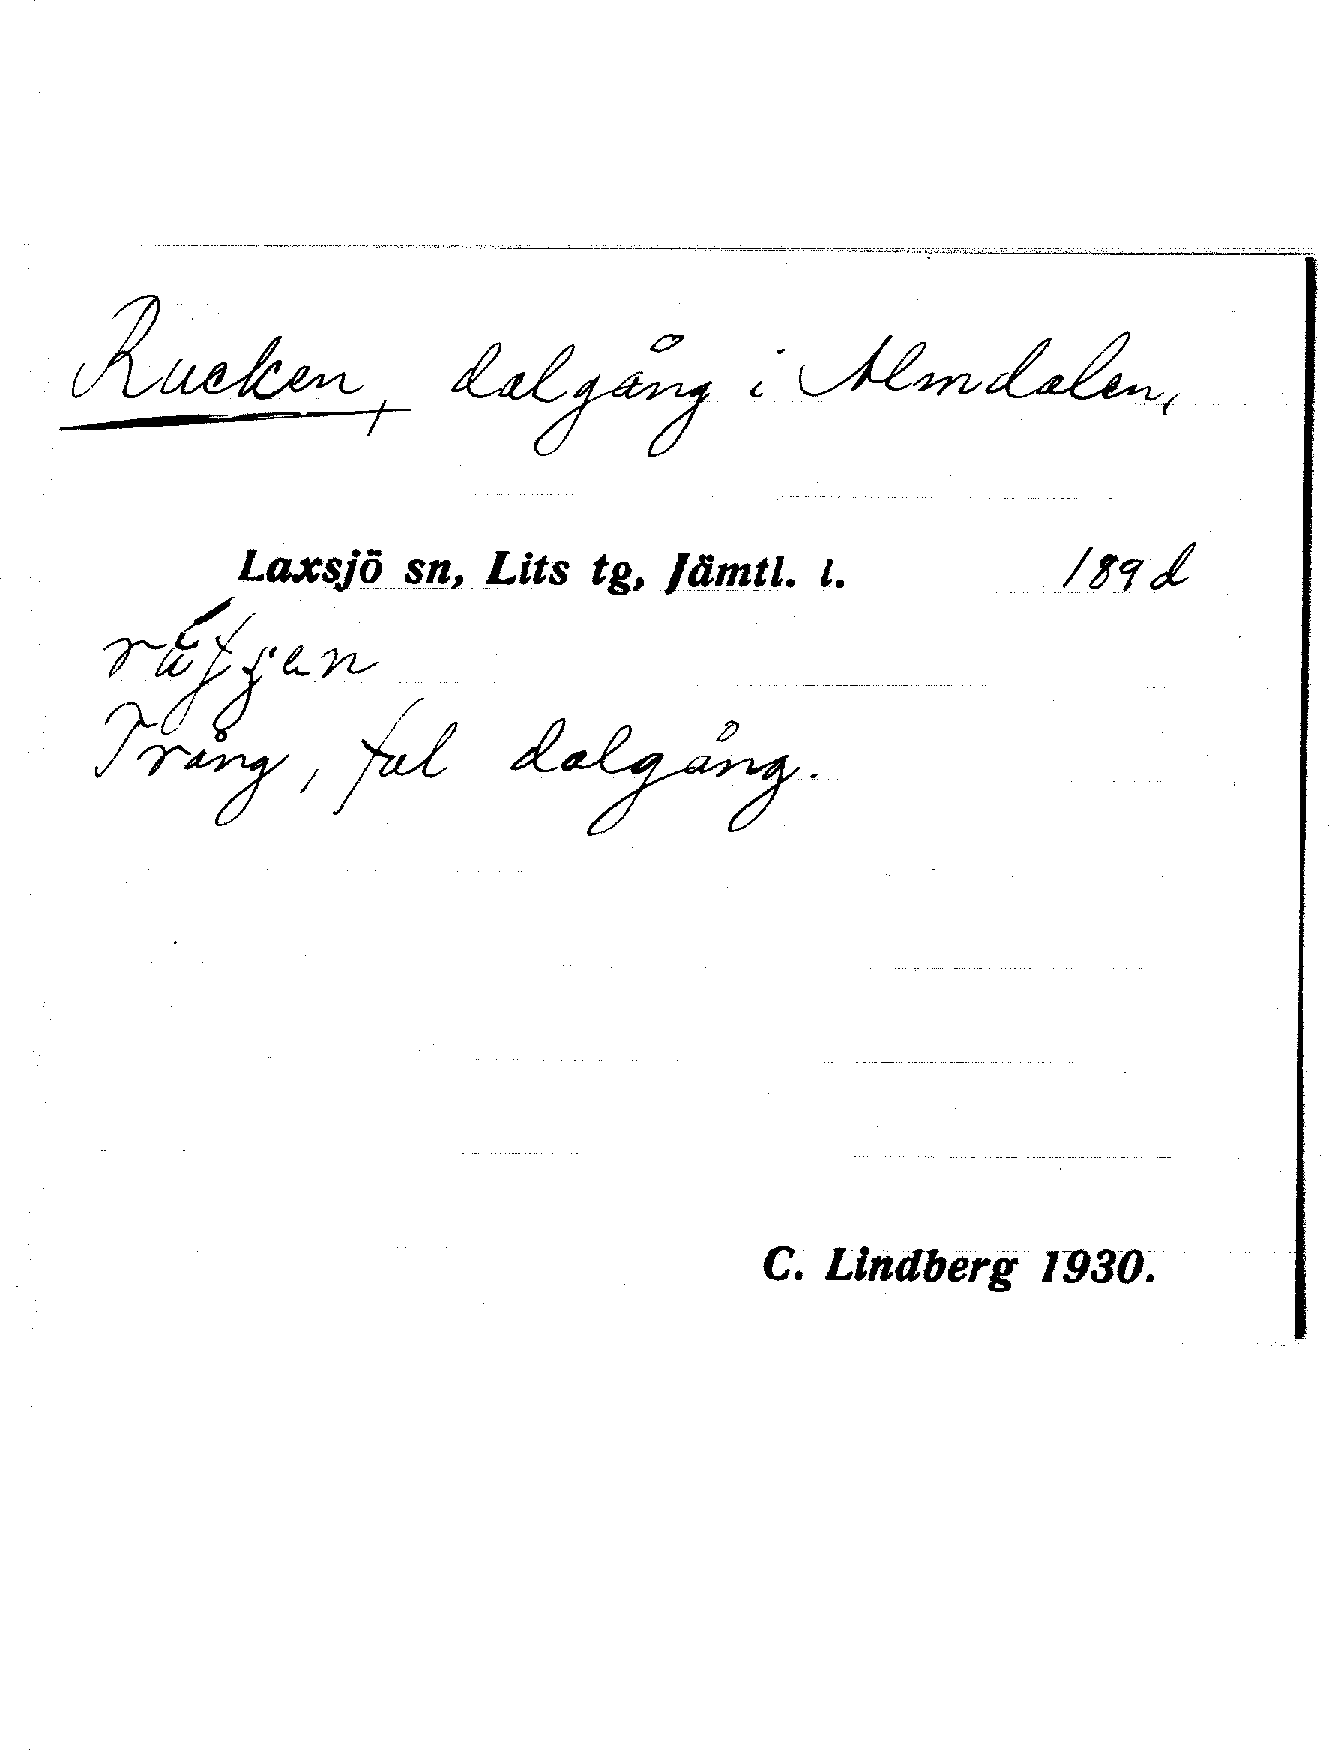 Rucken, dalgång i Almdalen,
Laxsjö sn, Lits tg, Jämtl. l. 189 d
Trång, ful dalgång.
C. Lindberg 1930.